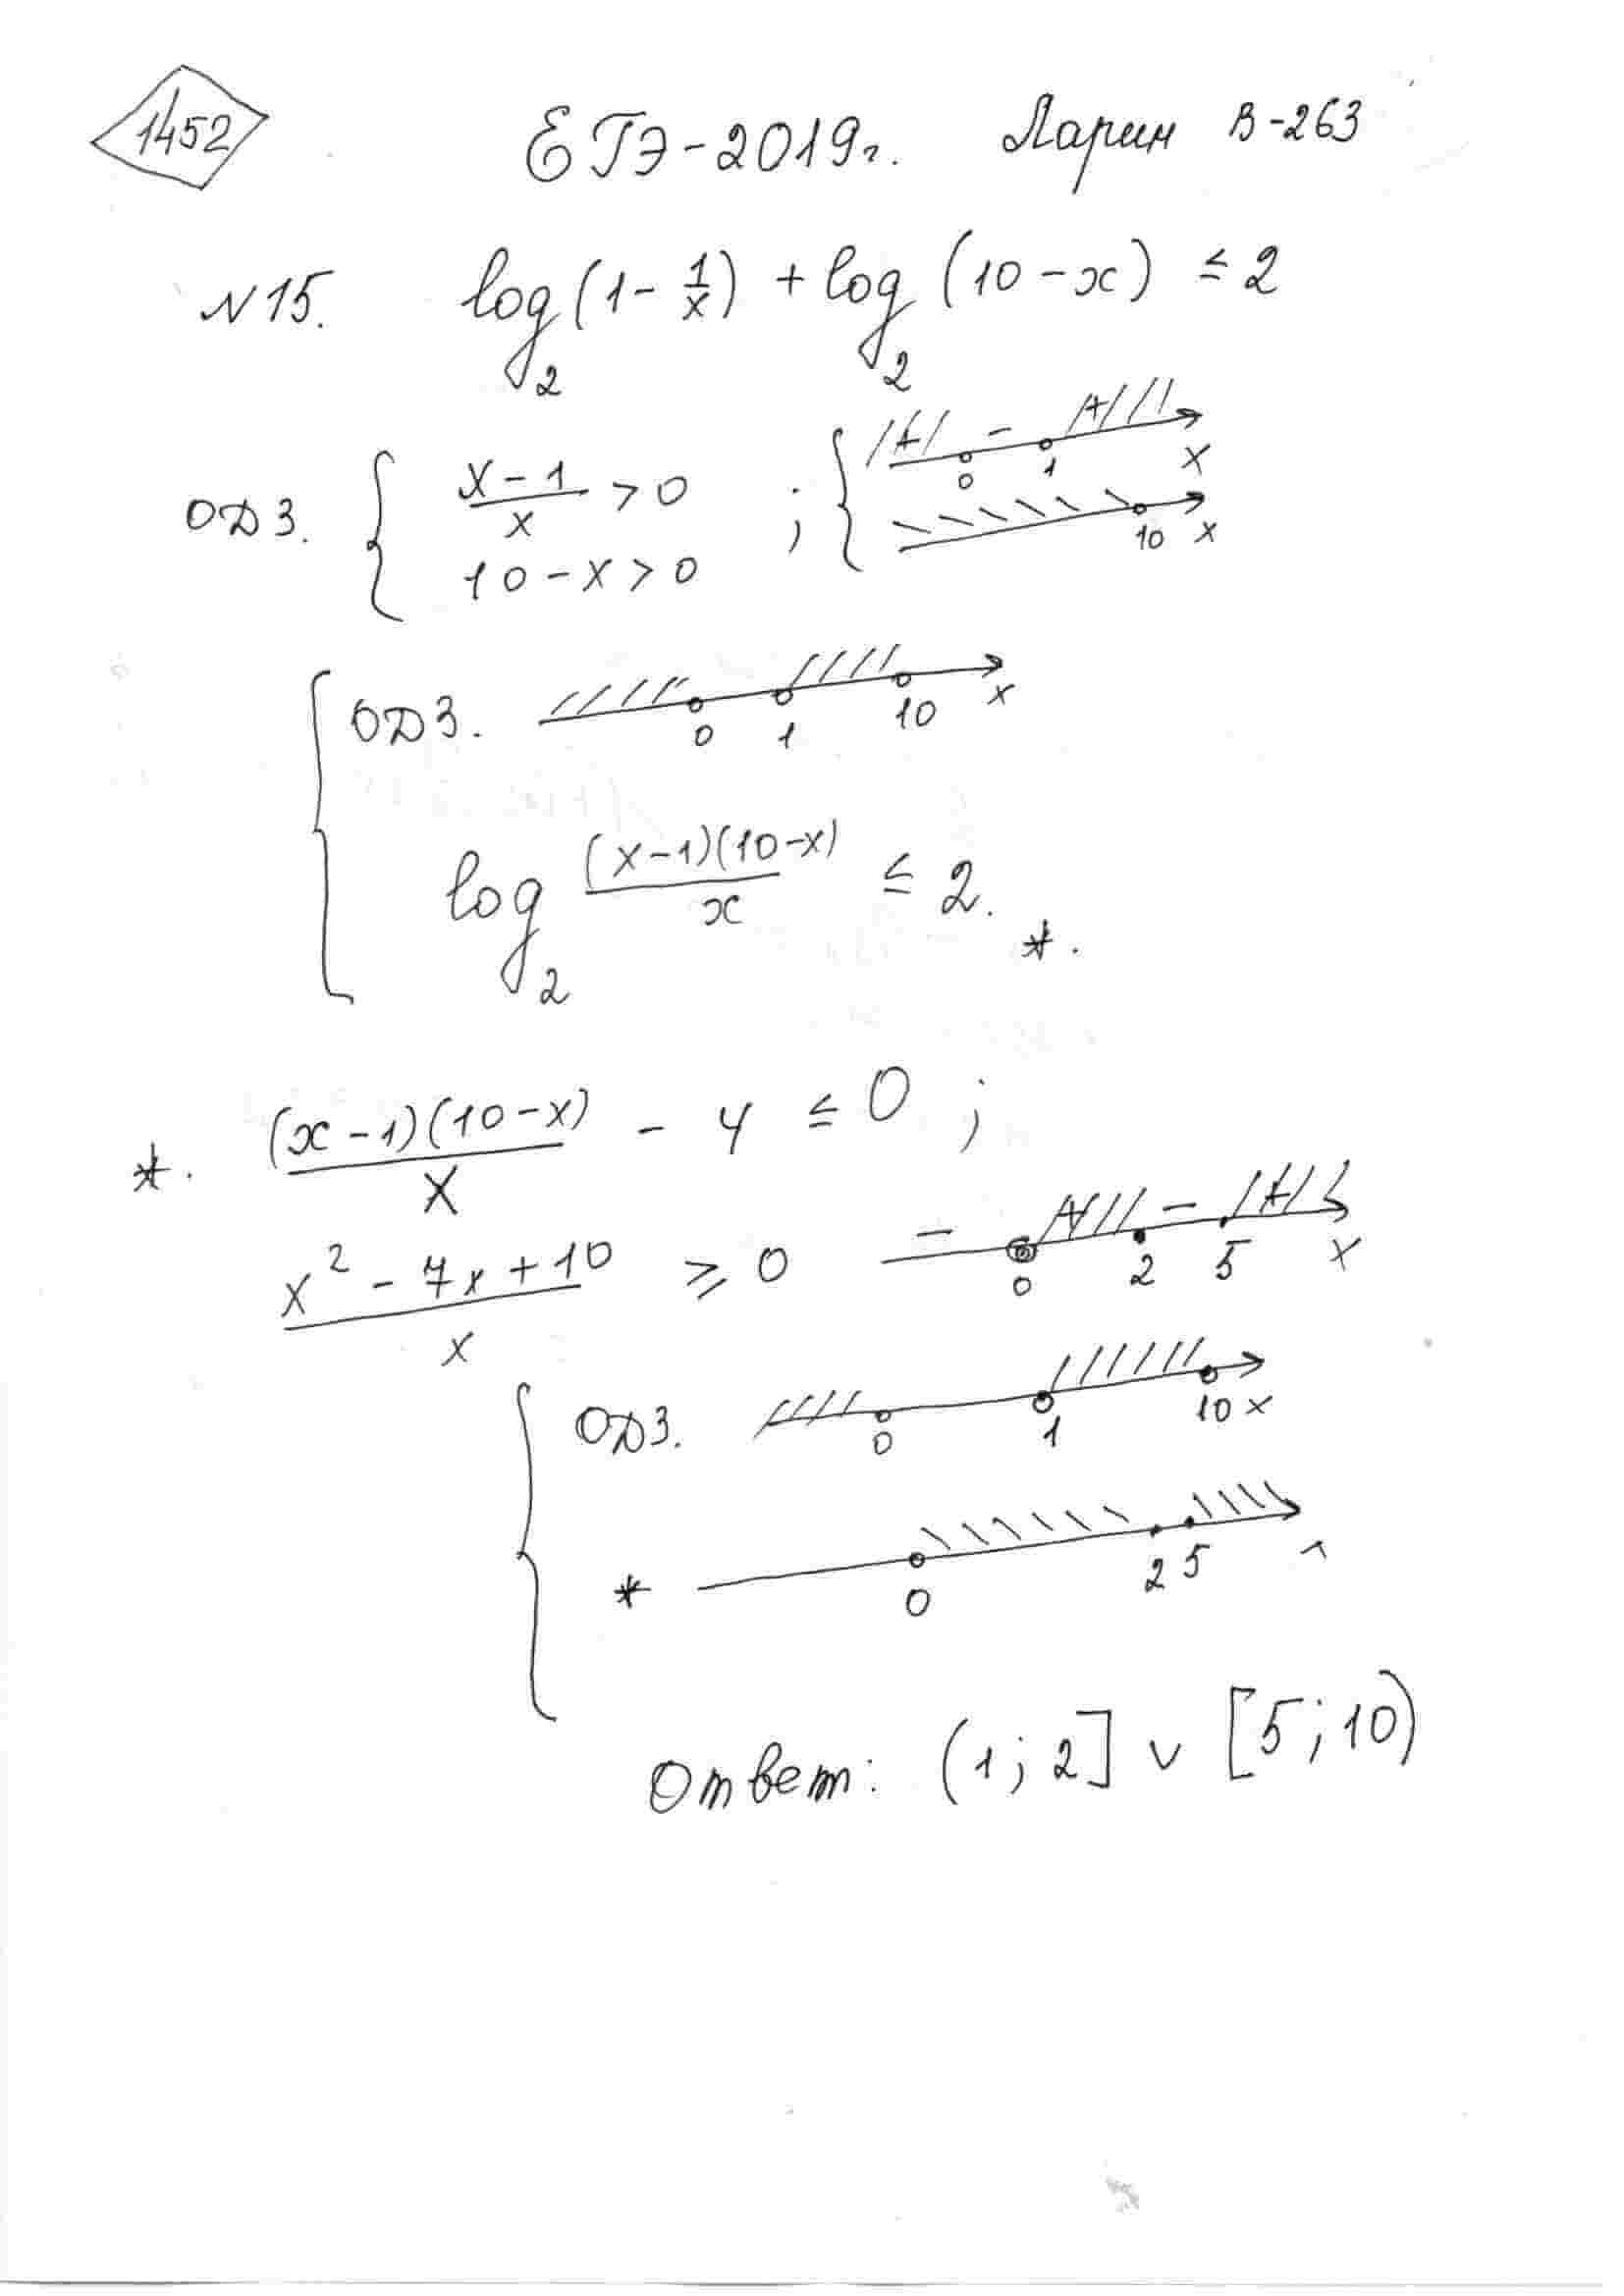 1452 ЕГЭ-2019г. Ларин В-263
№15. log₂(1 - 1/x) + log₂(10 - x) ≤ 2
ОДЗ. { (x - 1)/x > 0 ; { + - + 0 1 x
10 - x > 0 10 x
{ ОДЗ. 0 1 10 x
log₂ (x-1)(10-x)/x ≤ 2. *.
*. (x-1)(10-x)/x - 4 ≤ 0 ;
(x² - 7x + 10)/x ≥ 0 - + - + 0 2 5 x
{ ОДЗ. 0 1 10 x
* 0 2 5
Ответ: (1; 2] ∨ [5; 10)